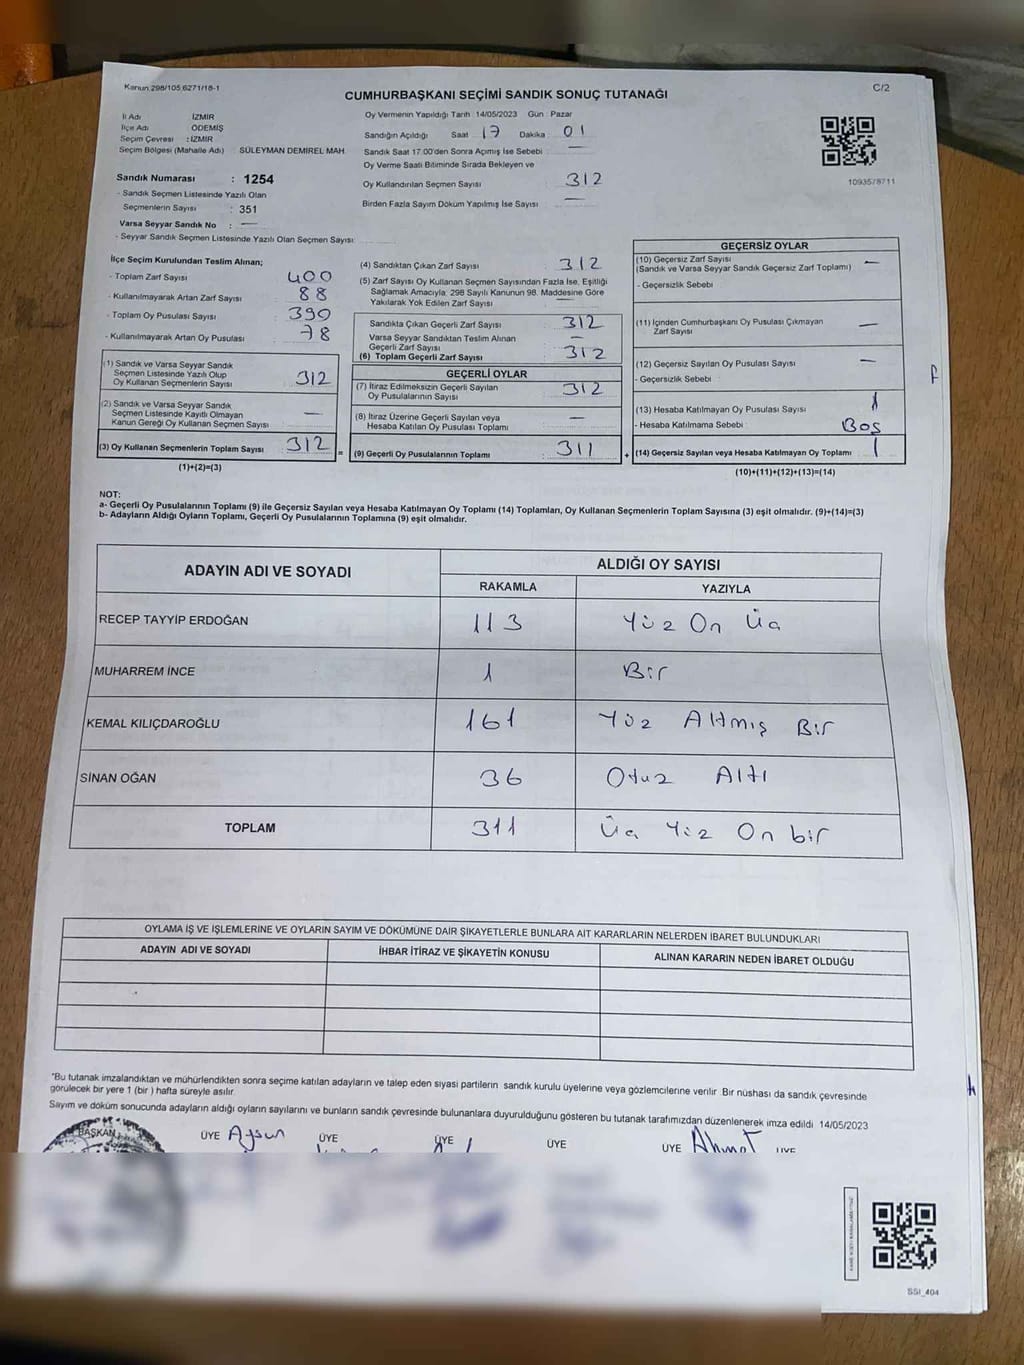 Kanun 298/105,6271/18-1
C/2
CUMHURBAŞKANI SEÇİMİ SANDIK SONUÇ TUTANAĞI
İl Adı İZMİR
İlçe Adı ÖDEMİŞ
Seçim Çevresi : İZMİR
Seçim Bölgesi (Mahalle Adı) : SÜLEYMAN DEMİREL MAH.
Sandık Numarası : 1254
- Sandık Seçmen Listesinde Yazılı Olan
Seçmenlerin Sayısı : 351
Varsa Seyyar Sandık No : —
- Seyyar Sandık Seçmen Listesinde Yazılı Olan Seçmen Sayısı
Oy Vermenin Yapıldığı Tarih 14/05/2023 Gün : Pazar
Sandığın Açıldığı Saat 17 Dakika 01
Sandık Saat 17:00'den Sonra Açımış İse Sebebi —
Oy Verme Saati Bitiminde Sırada Bekleyen ve
Oy Kullandırılan Seçmen Sayısı 312
Birden Fazla Sayım Döküm Yapılmış İse Sayısı —
1093578711
İlçe Seçim Kurulundan Teslim Alınan;
- Toplam Zarf Sayısı 400
- Kullanılmayarak Artan Zarf Sayısı 88
- Toplam Oy Pusulası Sayısı 390
- Kullanılmayarak Artan Oy Pusulası 78
(1) Sandık ve Varsa Seyyar Sandık
Seçmen Listesinde Yazılı Olup
Oy Kullanan Seçmenlerin Sayısı 312
(2) Sandık ve Varsa Seyyar Sandık
Seçmen Listesinde Kayıtlı Olmayan
Kanun Gereği Oy Kullanan Seçmen Sayısı —
(3) Oy Kullanan Seçmenlerin Toplam Sayısı 312 =
(1)+(2)=(3)
(4) Sandıktan Çıkan Zarf Sayısı 312
(5) Zarf Sayısı Oy Kullanan Seçmen Sayısından Fazla İse, Eşitliği
Sağlamak Amacıyla; 298 Sayılı Kanunun 98. Maddesine Göre
Yakılarak Yok Edilen Zarf Sayısı —
Sandıkta Çıkan Geçerli Zarf Sayısı 312
Varsa Seyyar Sandıktan Teslim Alınan
Geçerli Zarf Sayısı —
(6) Toplam Geçerli Zarf Sayısı 312
GEÇERLİ OYLAR
(7) İtiraz Edilmeksizin Geçerli Sayılan
Oy Pusulalarının Sayısı 312
(8) İtiraz Üzerine Geçerli Sayılan veya
Hesaba Katılan Oy Pusulası Toplamı —
(9) Geçerli Oy Pusulalarının Toplamı 311 +
GEÇERSİZ OYLAR
(10) Geçersiz Zarf Sayısı
(Sandık ve Varsa Seyyar Sandık Geçersiz Zarf Toplamı) —
- Geçersizlik Sebebi
(11) İçinden Cumhurbaşkanı Oy Pusulası Çıkmayan
Zarf Sayısı —
(12) Geçersiz Sayılan Oy Pusulası Sayısı —
- Geçersizlik Sebebi
(13) Hesaba Katılmayan Oy Pusulası Sayısı 1
- Hesaba Katılmama Sebebi Boş
(14) Geçersiz Sayılan veya Hesaba Katılmayan Oy Toplamı 1
(10)+(11)+(12)+(13)=(14)
NOT:
a- Geçerli Oy Pusulalarının Toplamı (9) ile Geçersiz Sayılan veya Hesaba Katılmayan Oy Toplamı (14) Toplamları, Oy Kullanan Seçmenlerin Toplam Sayısına (3) eşit olmalıdır. (9)+(14)=(3)
b- Adayların Aldığı Oyların Toplamı, Geçerli Oy Pusulalarının Toplamına (9) eşit olmalıdır.
ADAYIN ADI VE SOYADI
ALDIĞI OY SAYISI
RAKAMLA YAZIYLA
RECEP TAYYİP ERDOĞAN 113 Yüz On Üç
MUHARREM İNCE 1 Bir
KEMAL KILIÇDAROĞLU 161 Yüz Altmış Bir
SİNAN OĞAN 36 Otuz Altı
TOPLAM 311 Üç Yüz On bir
OYLAMA İŞ VE İŞLEMLERİNE VE OYLARIN SAYIM VE DÖKÜMÜNE DAİR ŞİKAYETLERLE BUNLARA AİT KARARLARIN NELERDEN İBARET BULUNDUKLARI
ADAYIN ADI VE SOYADI İHBAR İTİRAZ VE ŞİKAYETİN KONUSU ALINAN KARARIN NEDEN İBARET OLDUĞU
*Bu tutanak imzalandıktan ve mühürlendikten sonra seçime katılan adayların ve talep eden siyasi partilerin sandık kurulu üyelerine veya gözlemcilerine verilir. Bir nüshası da sandık çevresinde
görülecek bir yere 1 (bir ) hafta süreyle asılır.
Sayım ve döküm sonucunda adayların aldığı oyların sayılarını ve bunların sandık çevresinde bulunanlara duyurulduğunu gösteren bu tutanak tarafımızdan düzenlenerek imza edildi 14/05/2023
BAŞKAN ÜYE Aysun ÜYE ÜYE ÜYE ÜYE Ahmet ÜYE
SSI_404